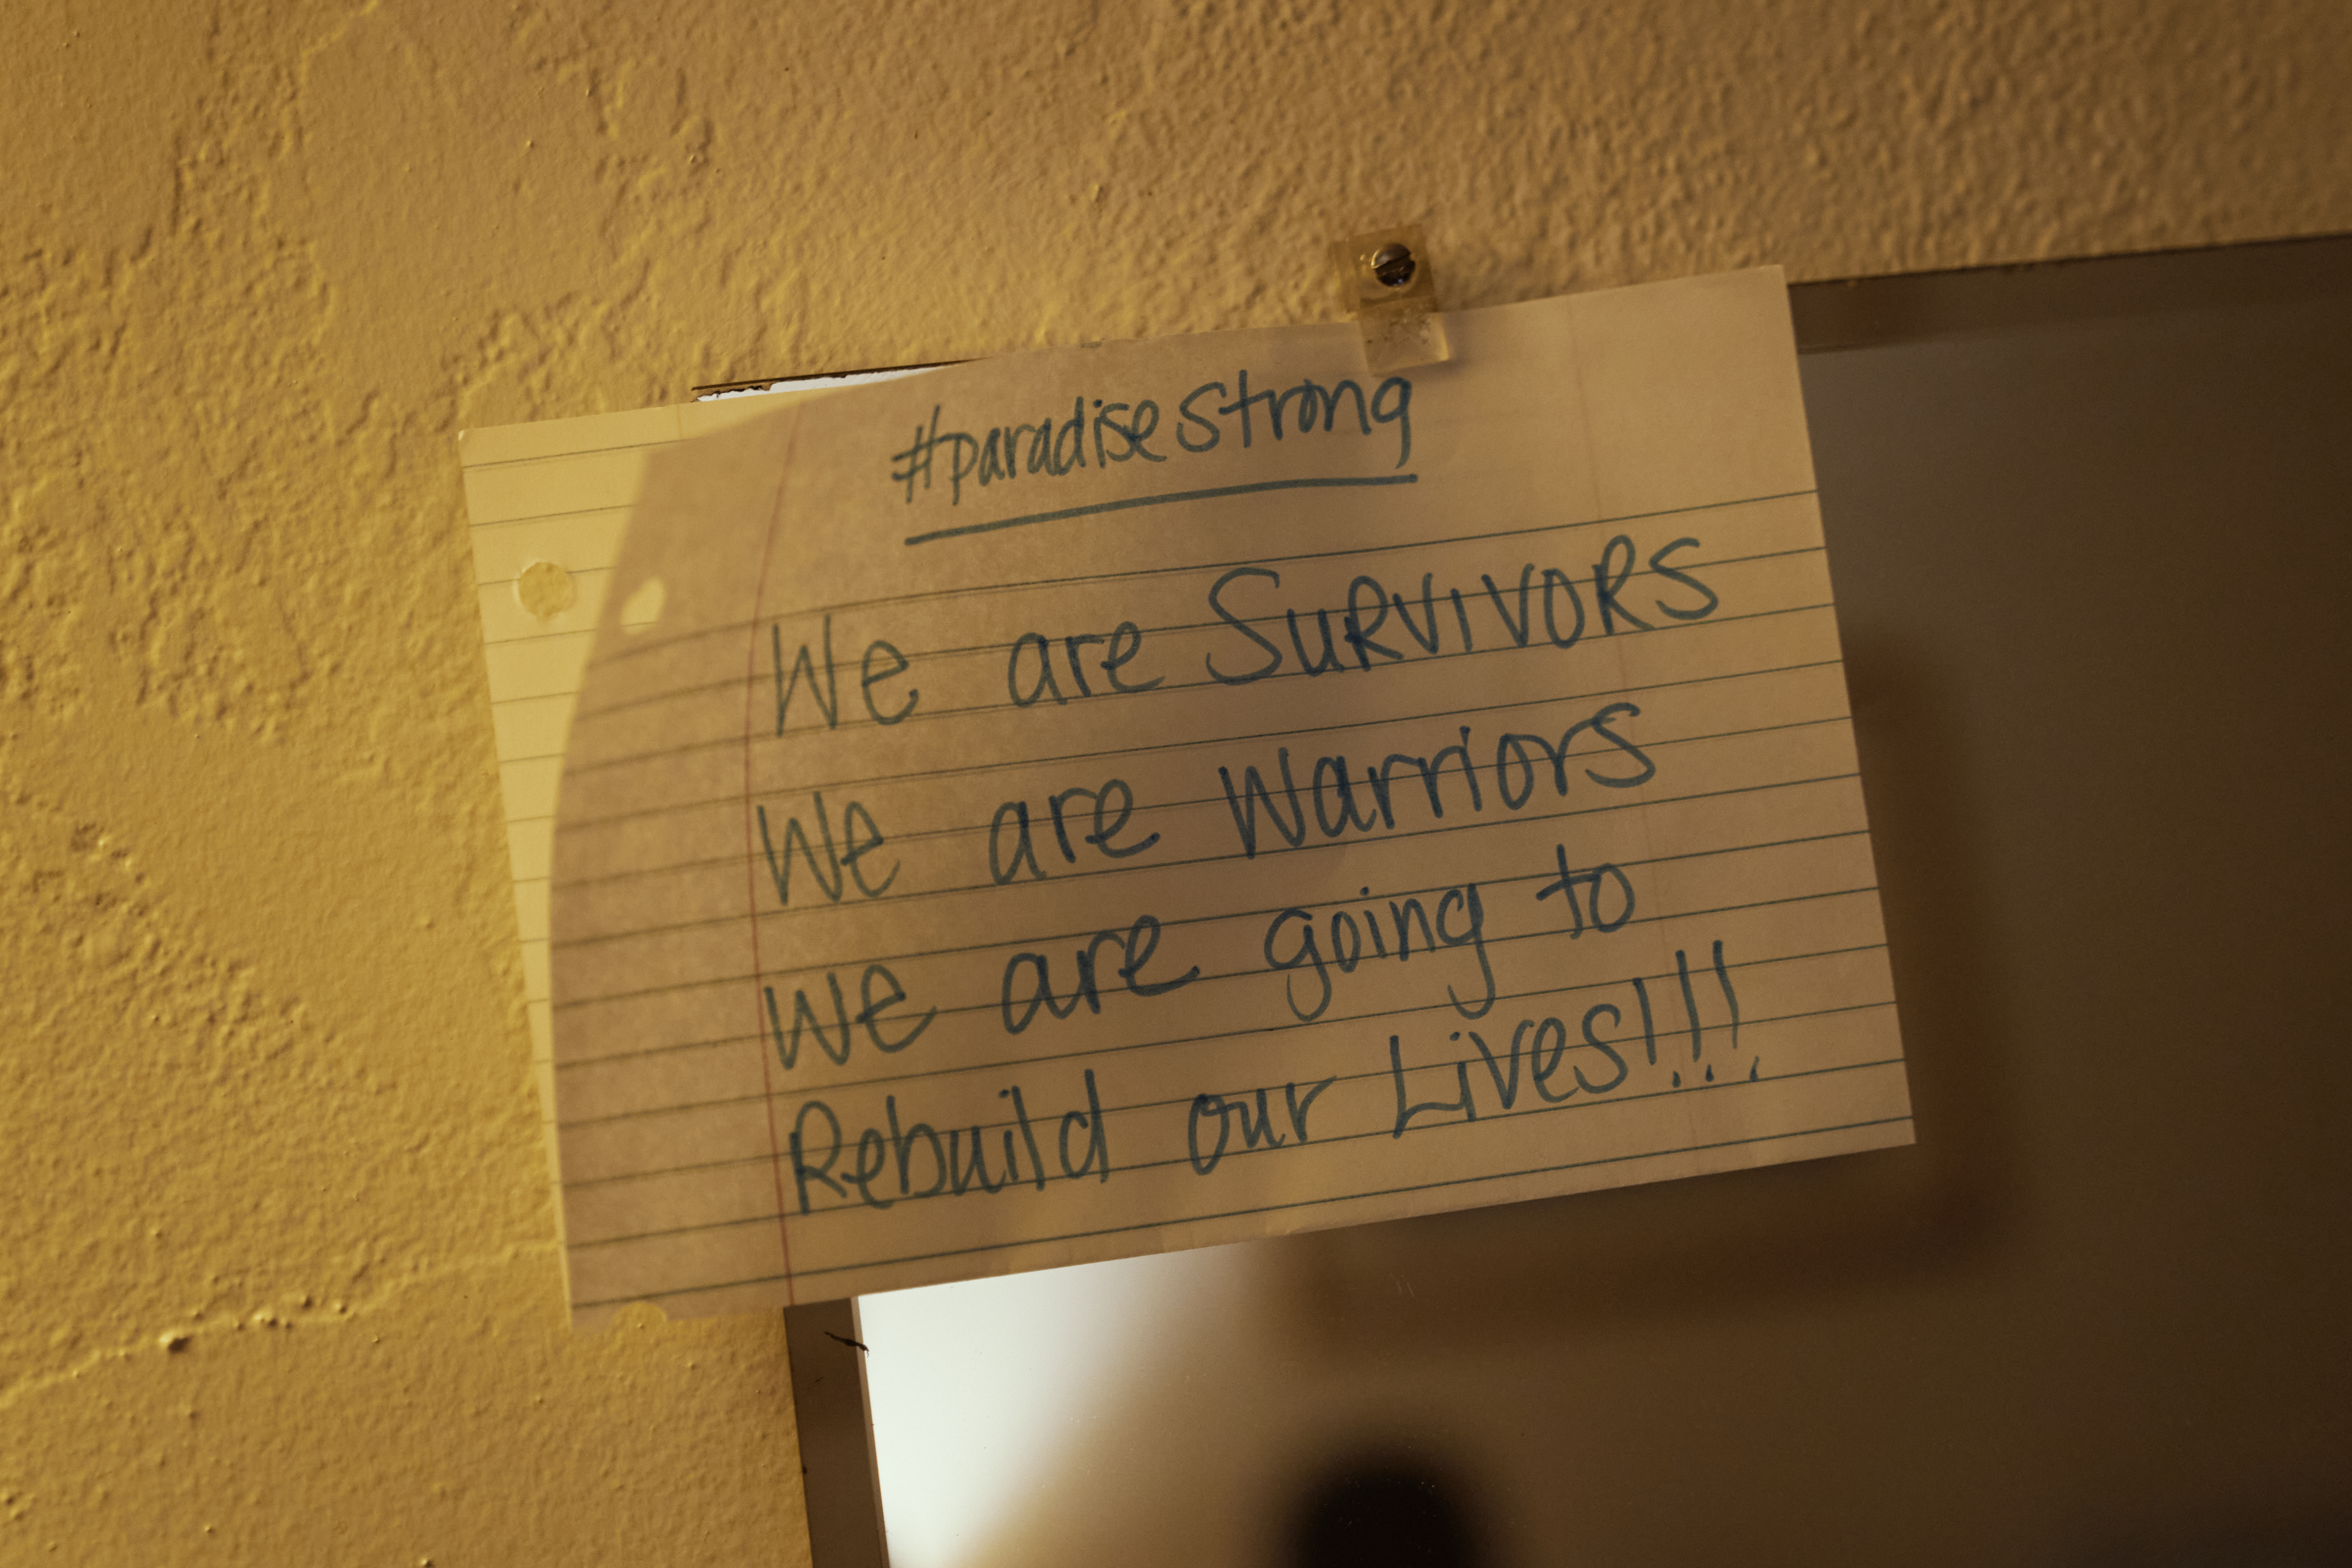 #paradisestrong
We are SURVIVORS
We are Warriors
We are going to
Rebuild our Lives!!!